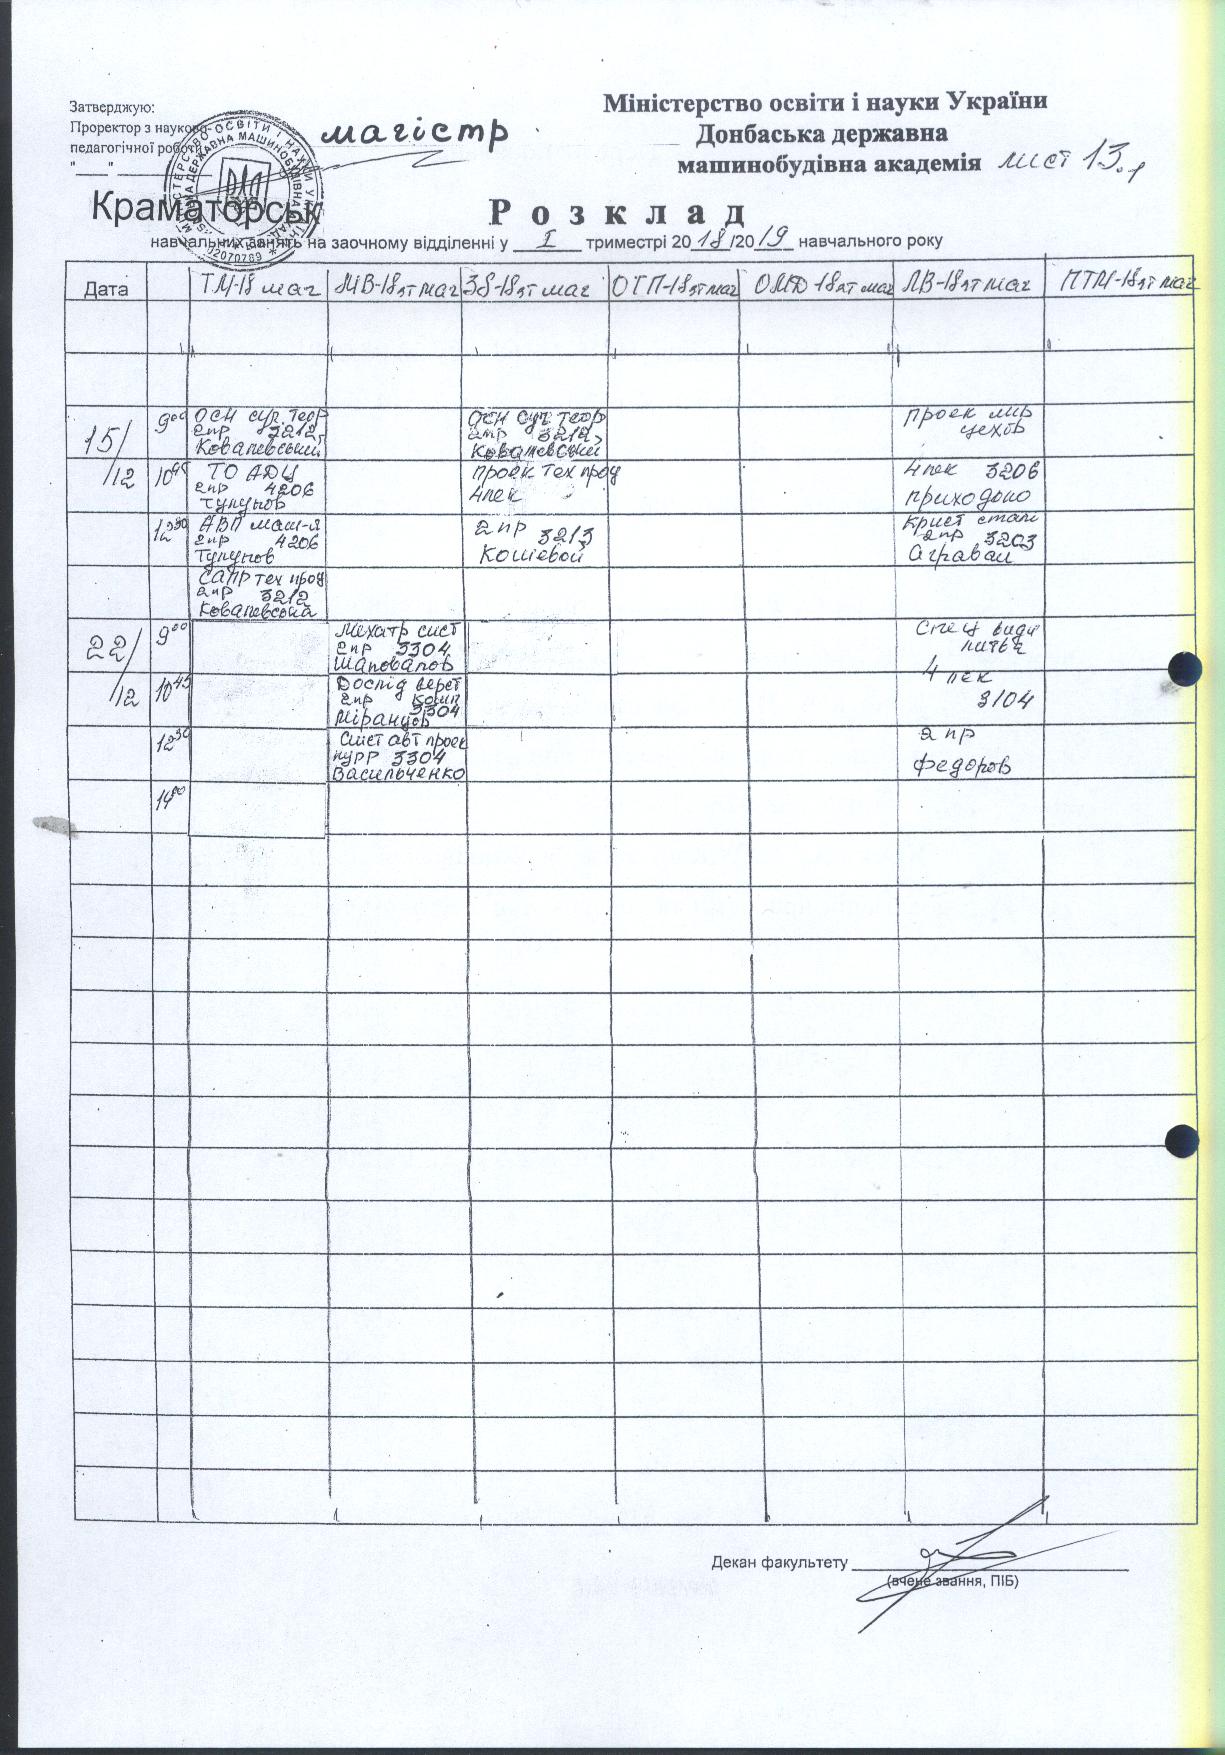 Затверджую:
Проректор з науково-
педагогічної роботи
"___" ________
магістр
Міністерство освіти і науки України
Донбаська державна
машинобудівна академія
лист 13.1
Краматорськ
02070789
Розклад
навчальних занять на заочному відділенні у I триместрі 2018/2019 навчального року
Дата ТМ-18 маг МВ-18зт маг ЗВ-18зт маг ОТП-18зт маг ОМД-18зт маг ЛВ-18зт маг ПТМ-18зт маг
15/12
9⁰⁰
осн суч теор
2пр 3212,
Ковалевський
осн суч теор
2пр 3212,
Ковалевський
проек лир
цехов
10⁴⁵
ТО АДЦ
2пр 4206
Тулупов
проек тех прод
4лек
4лек 3206
приходько
12³⁰
АВП маш-я
2пр 4206
Тулупов
2пр 3213
Кошевой
крист сталі
2пр 3203
Агравал
САПР тех прод
2пр 3212
Ковалевська
22/12
9⁰⁰
Мехатр сист
2пр 3304
Шаповалов
Спец види
лиття
10⁴⁵
Дослід верст
2пр комп
3304
Міранцов
4 лек
3104
12³⁰
Сист авт проек
3304
Васильченко
2 пр
Федоров
14⁰⁰
Декан факультету
(вчене звання, ПІБ)